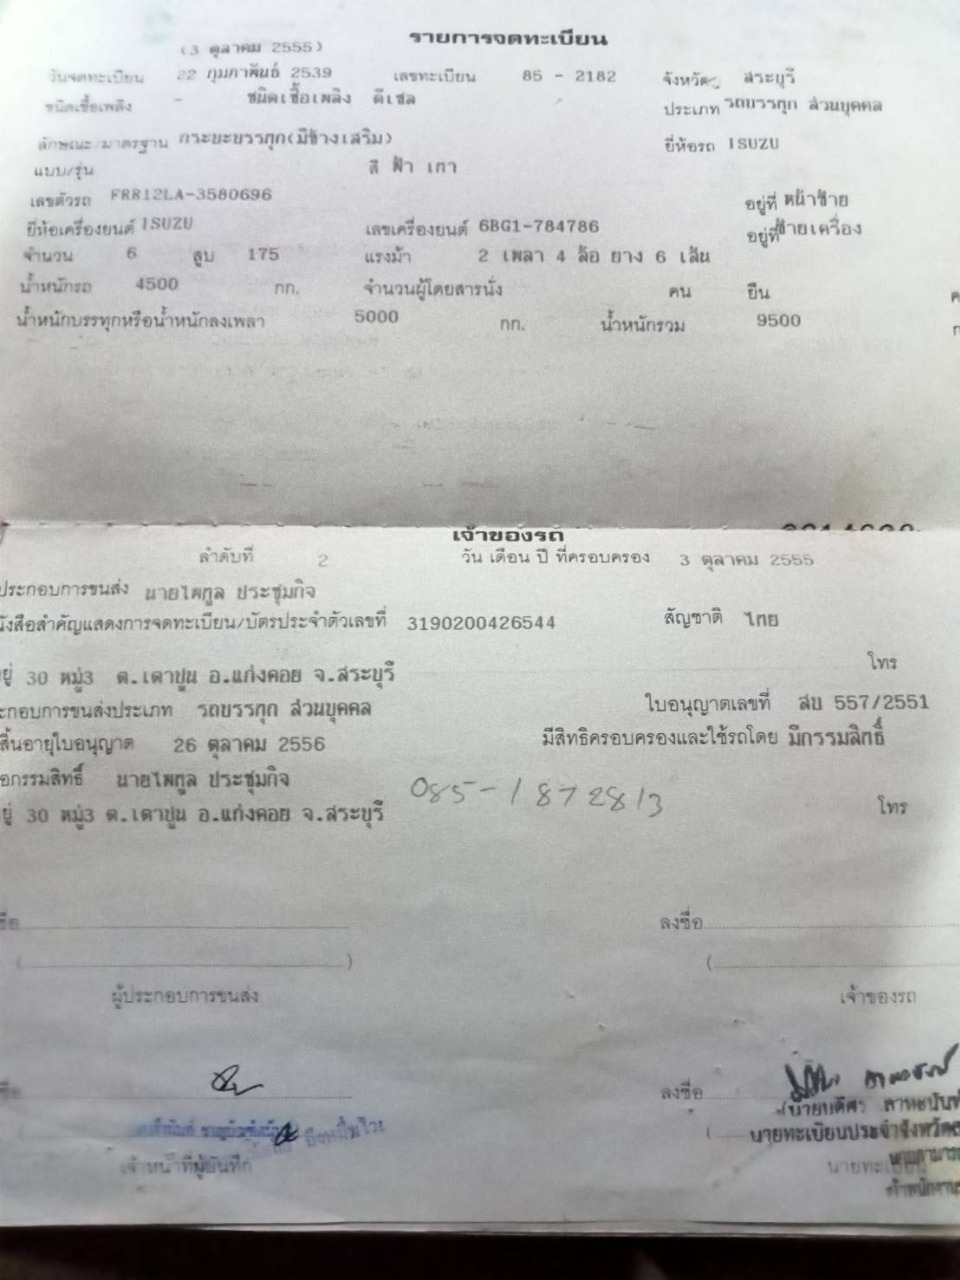 รายการจดทะเบียน
(3 ตุลาคม 2555)
วันจดทะเบียน 22 กุมภาพันธ์ 2539 เลขทะเบียน 85 - 2182 จังหวัด สระบุรี
ชนิดเชื้อเพลิง - ชนิดเชื้อเพลิง ดีเซล ประเภท รถบรรทุก ส่วนบุคคล
ลักษณะ/มาตรฐาน กระบะบรรทุก(มีข้างเสริม) ยี่ห้อรถ ISUZU
แบบ/รุ่น สี ฟ้า เทา
เลขตัวรถ FRR12LA-3580696 อยู่ที่ หน้าซ้าย
ยี่ห้อเครื่องยนต์ ISUZU เลขเครื่องยนต์ 6BG1-784786 อยู่ที่ ซ้ายเครื่อง
จำนวน 6 สูบ 175 แรงม้า 2 เพลา 4 ล้อ ยาง 6 เส้น
น้ำหนักรถ 4500 กก. จำนวนผู้โดยสารนั่ง คน ยืน ค
น้ำหนักบรรทุกหรือน้ำหนักลงเพลา 5000 กก. น้ำหนักรวม 9500 ก
เจ้าของรถ
ลำดับที่ 2 วัน เดือน ปี ที่ครอบครอง 3 ตุลาคม 2555
ประกอบการขนส่ง นายไพฑูล ประชุมกิจ
นังสือสำคัญแสดงการจดทะเบียน/บัตรประจำตัวเลขที่ 3190200426544 สัญชาติ ไทย
ยู่ 30 หมู่3 ต.เตาปูน อ.แก่งคอย จ.สระบุรี โทร
ะกอบการขนส่งประเภท รถบรรทุก ส่วนบุคคล ใบอนุญาตเลขที่ สบ 557/2551
สิ้นอายุใบอนุญาต 26 ตุลาคม 2556 มีสิทธิครอบครองและใช้รถโดย มีกรรมสิทธิ์
อกรรมสิทธิ์ นายไพฑูล ประชุมกิจ
085-1872813
ยู่ 30 หมู่3 ต.เตาปูน อ.แก่งคอย จ.สระบุรี โทร
ชื่อ ลงชื่อ
( ) (
ผู้ประกอบการขนส่ง เจ้าของรถ
ชื่อ ลงชื่อ
นายทะเบียนประจำจังหวัดส
เจ้าหน้าที่ผู้บันทึก นายทะเบียน